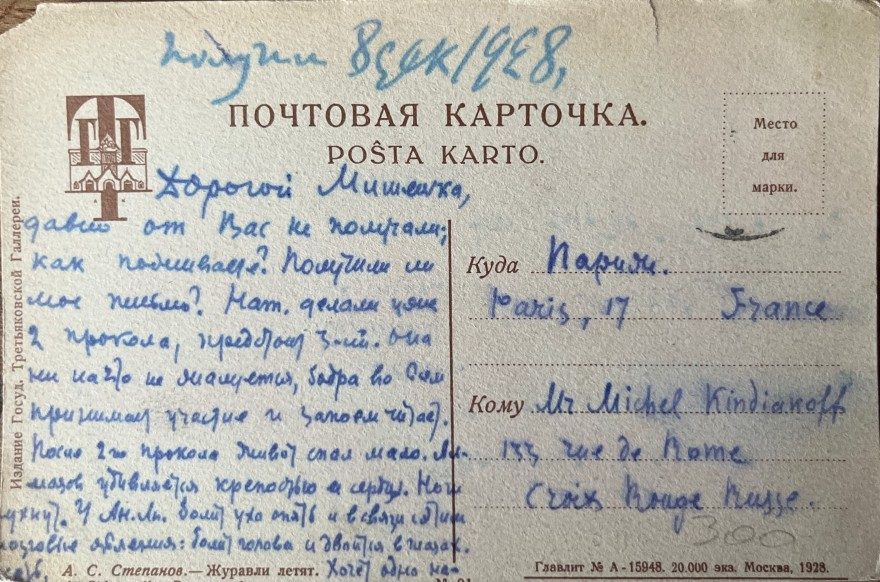 получил 8 дек 1928,
ПОЧТОВАЯ КАРТОЧКА.
POŜTA KARTO.
Место
для
марки.
Издание Госуд. Третьяковской Галлереи.
Дорогой Мишенька,
давно от Вас не получали;
как поживаете? Получили ли
мое письмо? Нат. делали уже
2 прокола, предстоит 3-ий. Она
ни на что не жалуется, бодра во всем
принимает участие и запоем читает.
После 2го прокола живот стал мало. Ал-
мазов удивляется крепостью ея сердца. Ноги
пухнут. У Ан. Ан. болит ухо опять и в связи с этим
мозговые явления: болит голова и двоится в глазах.
Хочет одно на-
Куда Париж.
Paris, 17 France
Кому Mr Michel Kindiakoff
133 rue de Rome
Croix Rouge Russe.
300
А. С. Степанов.—Журавли летят.
Главлит № А-15948. 20.000 экз. Москва, 1928.